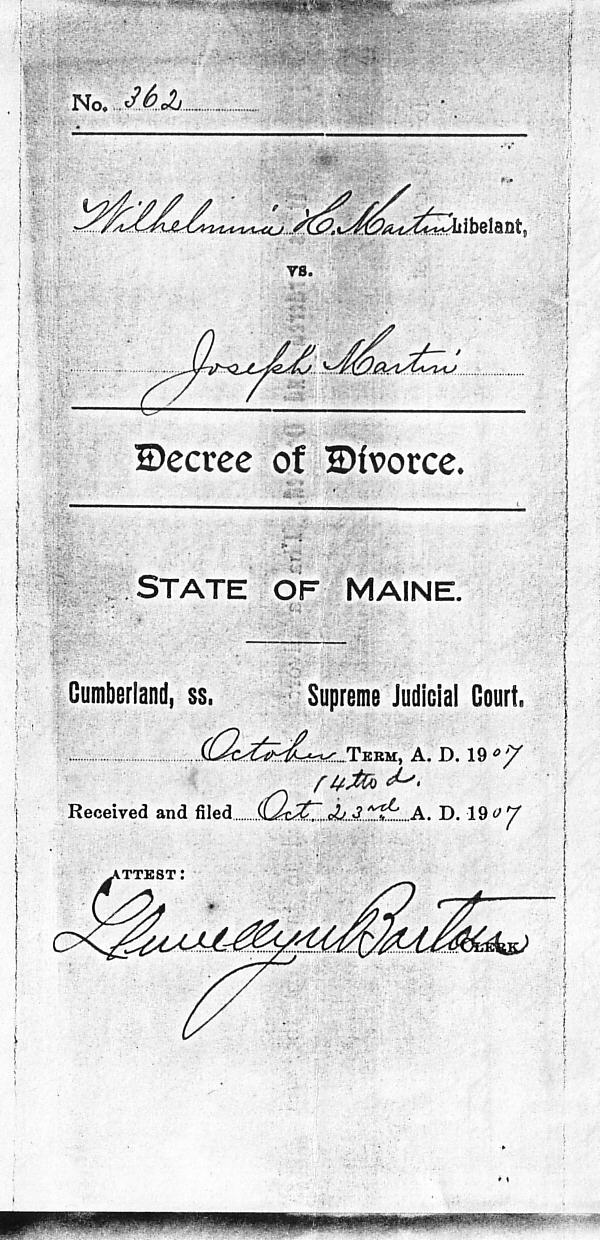 No. 362
Wilhelmina H. Martin Libelant,
vs.
Joseph Martin
Decree of Divorce.
STATE OF MAINE.
Cumberland, ss. Supreme Judicial Court.
October TERM, A. D. 1907
14th d.
Received and filed Oct. 23rd A. D. 1907
ATTEST:
Llewellyn Barton CLERK